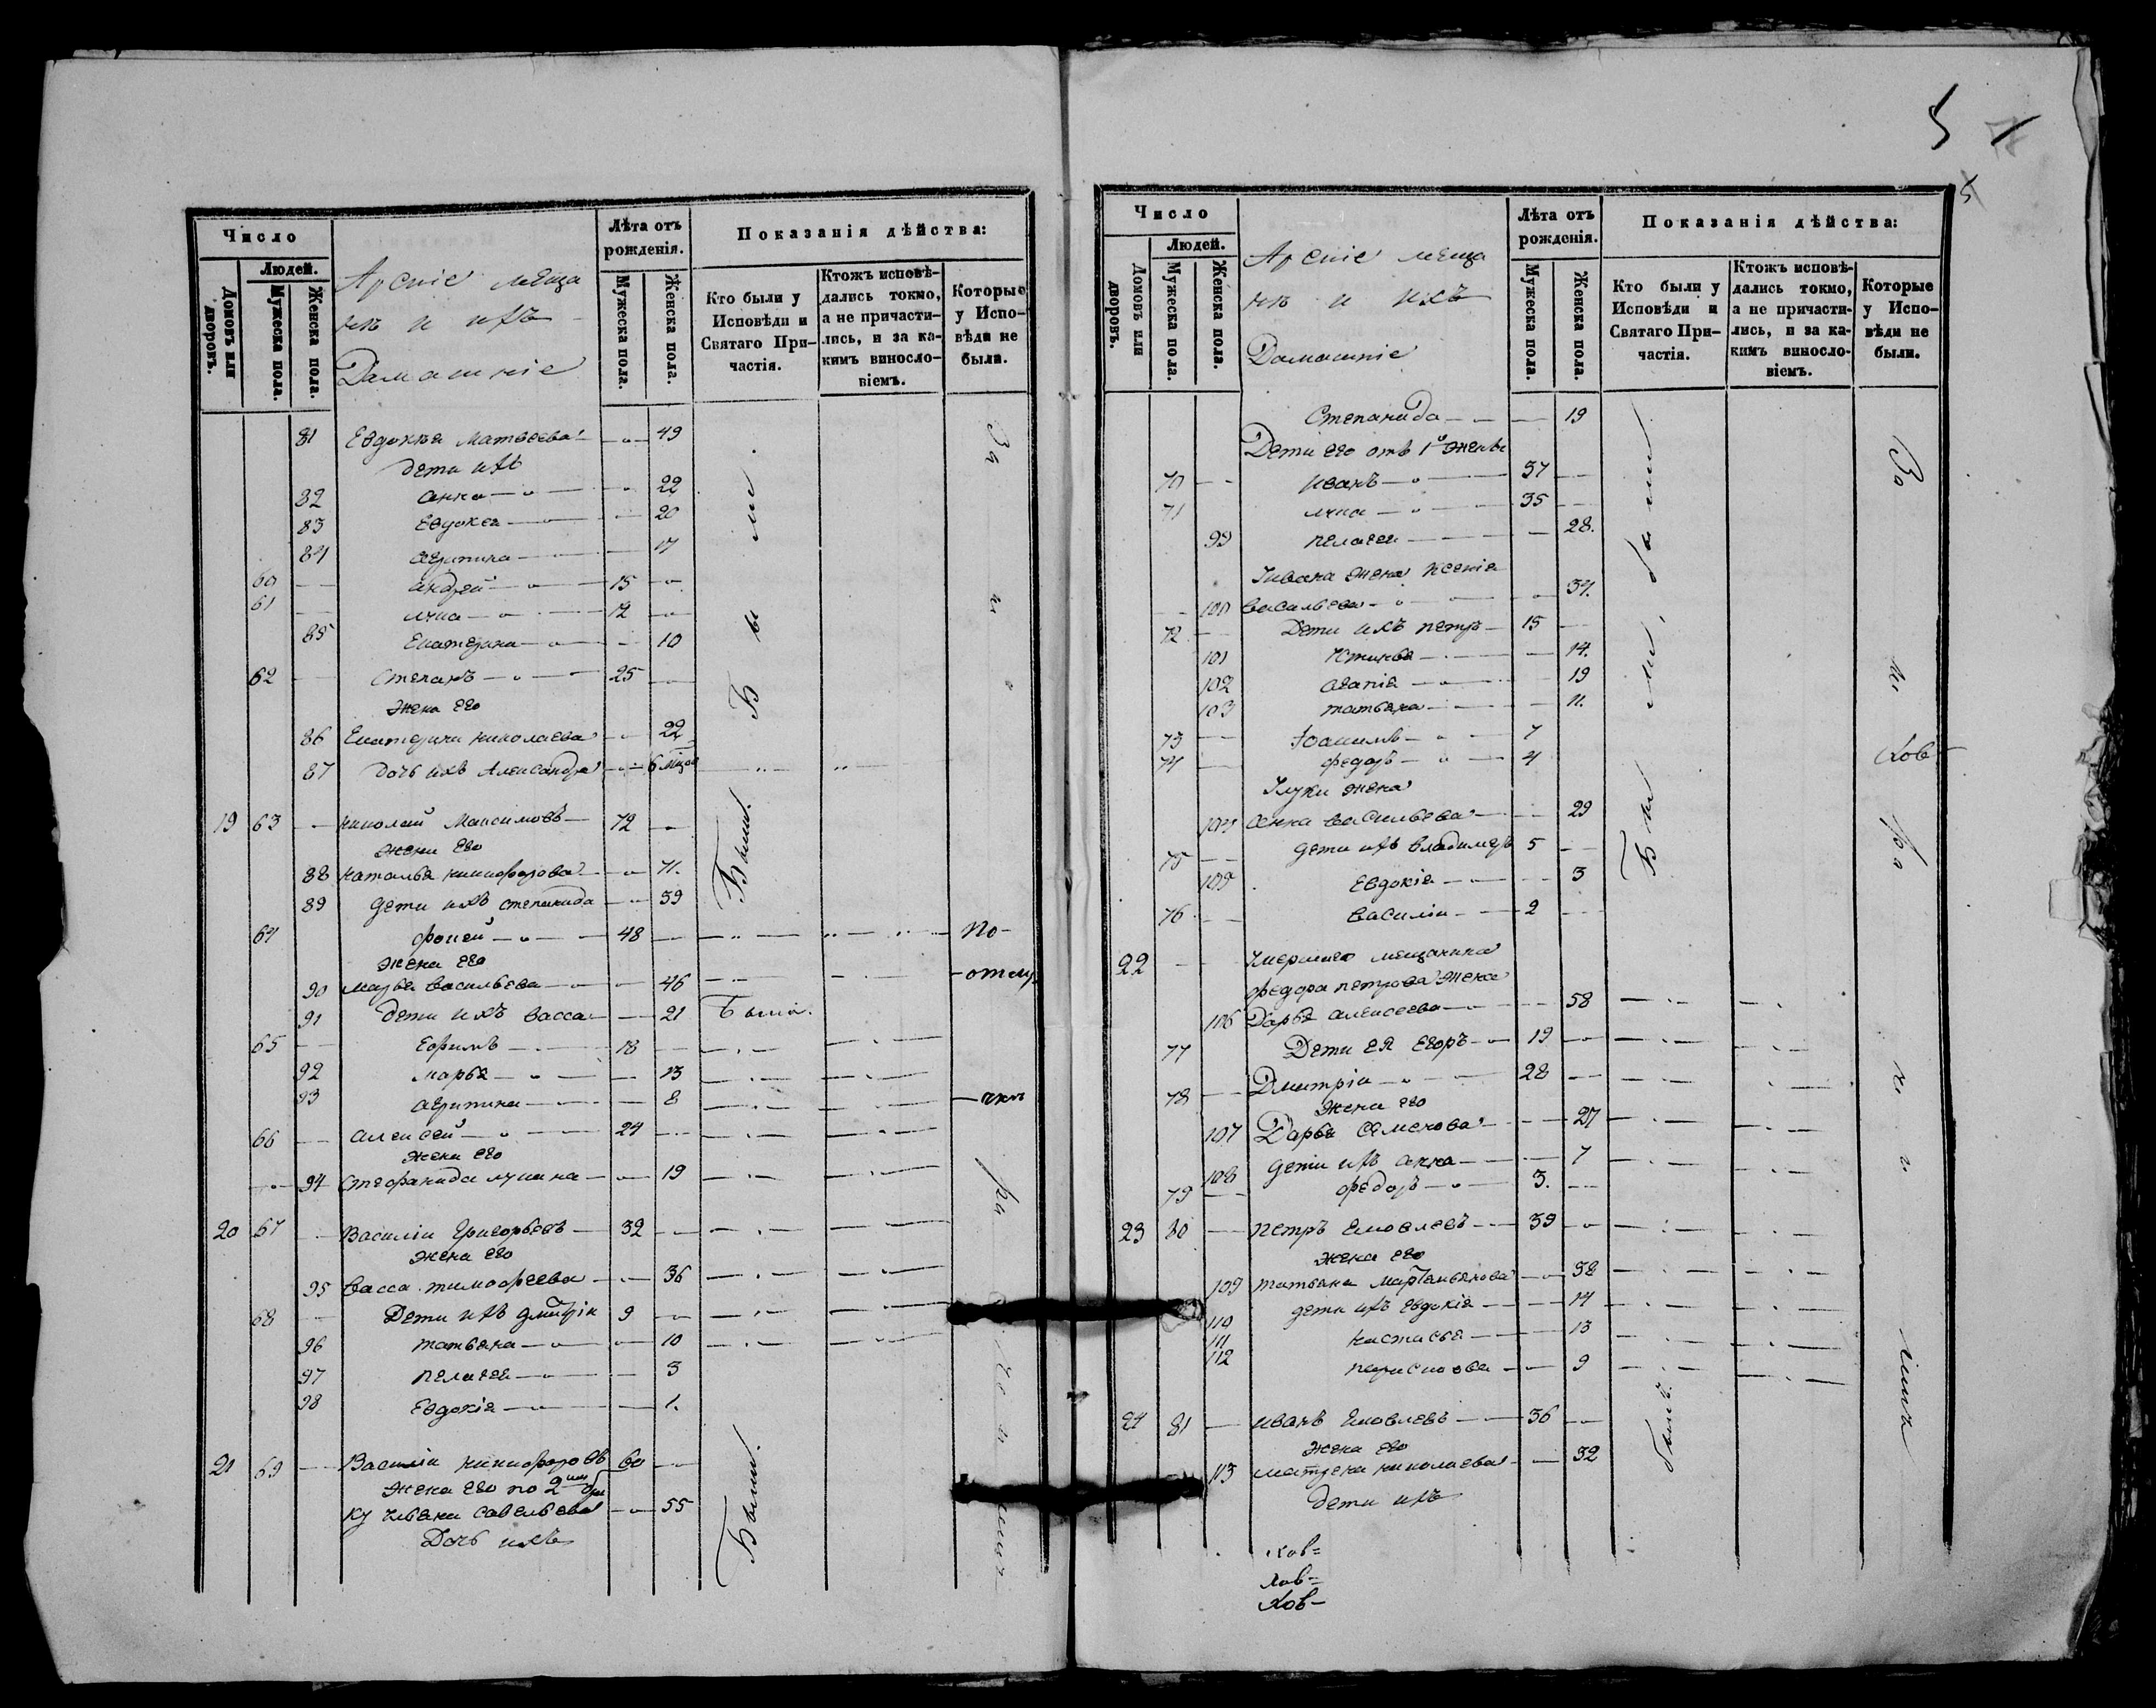 5
5
Число
Людей.
Домовъ или дворовъ.
Мужеска пола.
Женска пола.
мѣща
нѣ и ихъ
Домашніе
Лѣта отъ рожденія.
Мужеска пола.
Женска пола.
Показанія дѣйства:
Кто были у Исповѣди и Святаго Причастія.
Ктожъ исповѣдались токмо, а не причастились, и за какимъ винословіемъ.
Которые у Исповѣди не были.
81 Евдокия Матвеева 49
дети ихъ
82 Анна 22
83 Евдокея 20
84 Агрипина 17
60 Андрей 15
61 Лука 12
85 Екатерина 10
62 Степанъ 25
жена его
86 Екатерина Николаева 22
87 дочь ихъ Александра 6
Были
19 63 Николай Максимовъ 72
жена его
88 Наталья Никифорова 71
89 дети ихъ Степанида 39
Были.
64 Фокей 48 По
жена его
90 Марья Васильева 46 отлу
91 дети ихъ Васса 21 Была.
65 Ефимъ 18
92 Марья 13
93 Агрипина 8 чкѣ
66 Алексей 24
жена его
94 Стефанида Лукина 19
20 67 Василіи Григорьевъ 32
жена его
95 Васса Тимофеева 36
68 Дети ихъ Дмитріи 9
96 Татьяна 10
97 Пелагея 3
98 Евдокія 1.
21 69 Василіи Никифоровъ 60
жена его по 2му бра
ку Ульяна Савельева 55
Дочь ихъ
Были.
Число
Людей.
Домовъ или дворовъ.
Мужеска пола.
Женска пола.
мѣща
нѣ и ихъ
Домашніе
Лѣта отъ рожденія.
Мужеска пола.
Женска пола.
Показанія дѣйства:
Кто были у Исповѣди и Святаго Причастія.
Ктожъ исповѣдались токмо, а не причастились, и за какимъ винословіемъ.
Которые у Исповѣди не были.
Степанида 19
Дети его отъ 1й жены
70 Иванъ 37
71 Лука 35
99 Пелагея 28.
Ивана жена Ксенія
100 Васильева 34.
72 Дети ихъ Петръ 15
101 Устинья 14.
102 Агапія 19
103 Татьяна 11.
73 Іоакимъ 7
74 Федоръ 4
Луки жена
104 Анна Васильева 29
75 дети ихъ Владимеръ 5
105 Евдокія 3
76 Василіи 2
22 Умершаго мещанина
Федора Петрова жена
106 Дарья Алексеева 58
77 Дети ея Егоръ 19
78 Дмитріи 28
жена его
107 Дарья Семенова 27
108 дети ихъ Анна 7
79 Федоръ 3.
23 80 Петръ Яковлевъ 39
жена его
109 Татьяна Мартемьянова 38
110 дети ихъ Евдокія 14
111 Настасья 13
112 Парасковья 9
24 81 Иванъ Яковлевъ 36
жена его
113 Матрена Николаева 32
дети ихъ